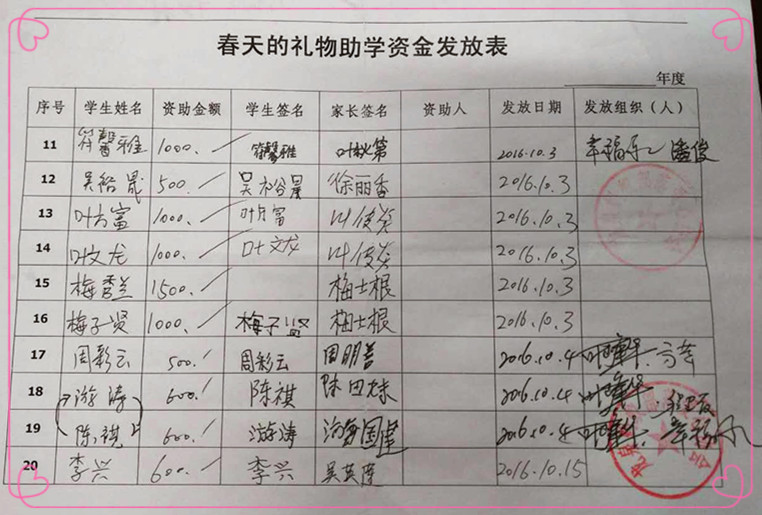 春天的礼物助学资金发放表
年度
序号 学生姓名 资助金额 学生签名 家长签名 资助人 发放日期 发放组织（人）
11 符馨雅 1000. 符馨雅 叶秋第 2016.10.3 幸福 潘俊
12 吴裕晟 500. 吴裕晟 徐丽香 2016.10.3
13 叶方富 1000. 叶方富 2016.10.3
14 叶文龙 1000. 叶文龙 2016.10.3
15 梅秀兰 1500. 梅士根 2016.10.3
16 梅子贤 1000. 梅子贤 梅士根 2016.10.3
17 周彩云 500. 周彩云 周明善 2016.10.4
18 游涛 600. 陈祺 2016.10.4
19 陈祺 600. 游涛 游国建 2016.10.4
20 李兴 600. 李兴 吴英莲 2016.10.15